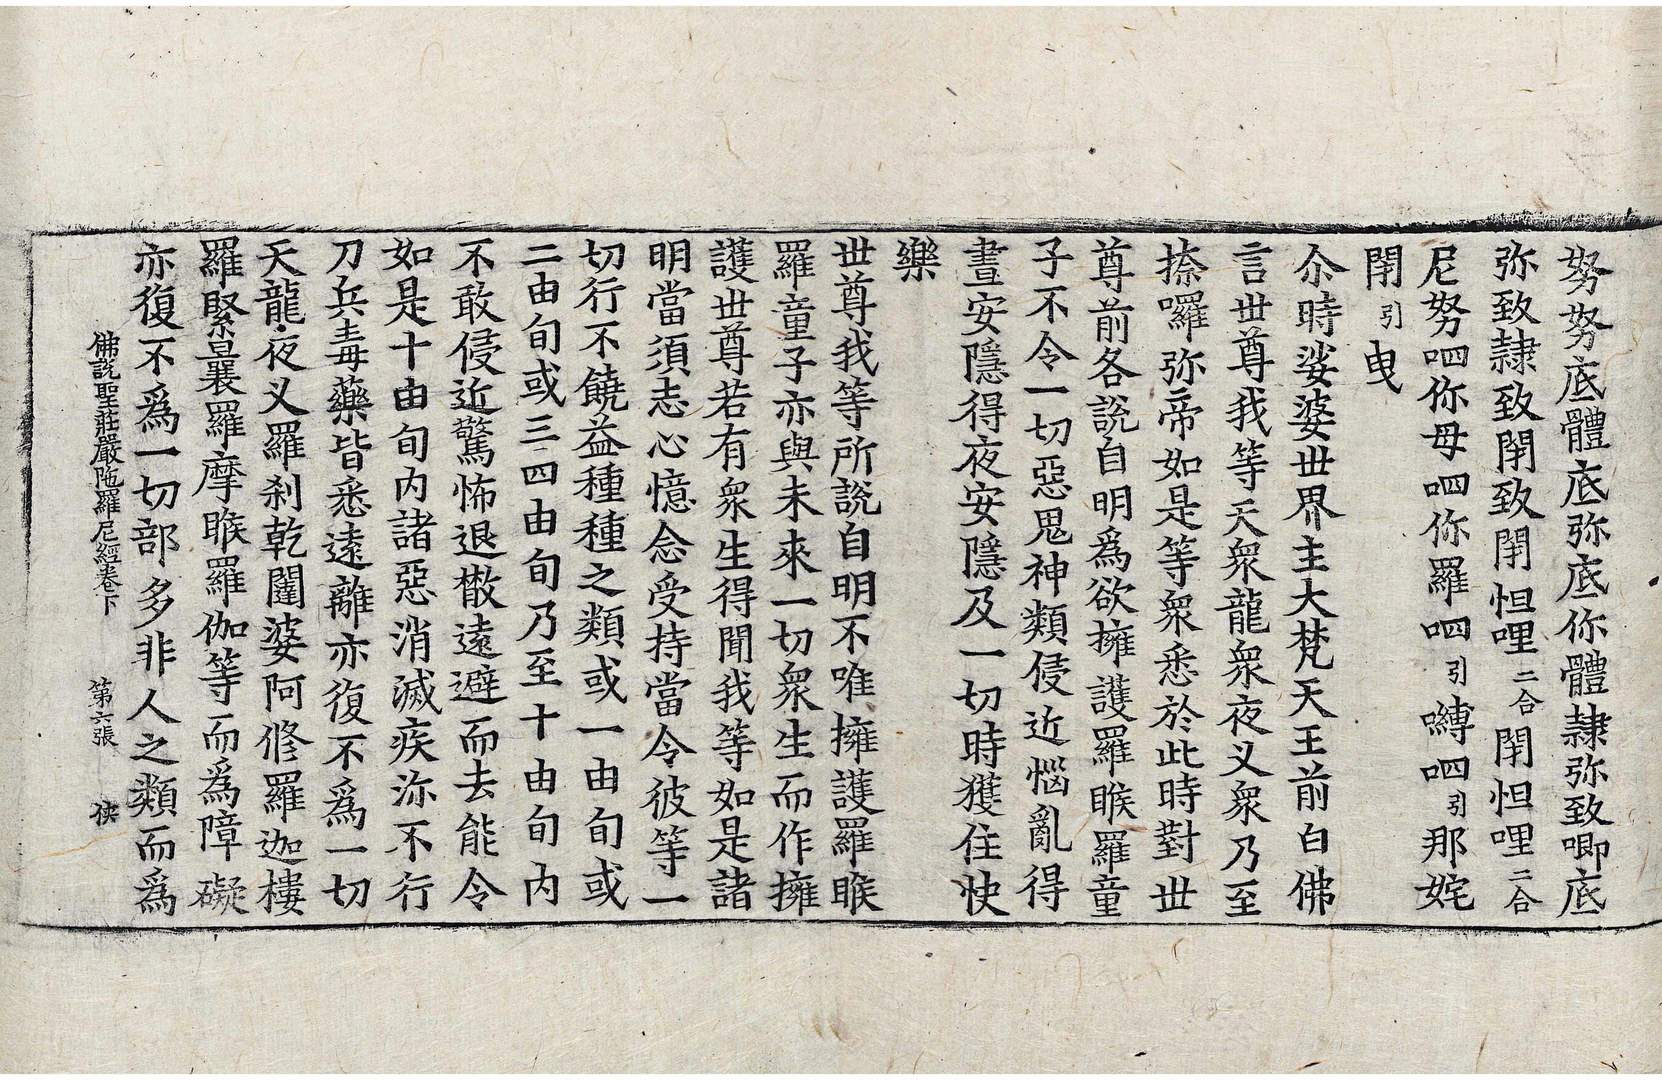 努努底體底弥底你體隷弥致唧底
弥致隷致閇致閇怛哩二合閇怛哩二合
尼努呬你母呬你羅呬引嚩呬引那姹
閇引曳
尒時娑婆世界主大梵天王前白佛
言世尊我等天衆龍衆夜义衆乃至
捺囉弥帝如是等衆悉於此時對世
尊前各說自明爲欲擁護羅睺羅童
子不令一切惡鬼神類侵近惱亂得
晝安隱得夜安隱及一切時獲住快
樂
世尊我等所說自明不唯擁護羅睺
羅童子亦與未來一切衆生而作擁
護世尊若有衆生得聞我等如是諸
明當須志心憶念受持當令彼等一
切行不饒益種種之類或一由旬或
二由旬或三四由旬乃至十由旬内
不敢侵近驚怖退散遠避而去能令
如是十由旬内諸惡消滅疾沵不行
刀兵毒藥皆悉遠離亦復不爲一切
天龍夜义羅刹乾闥婆阿修羅迦樓
羅緊曩羅摩睺羅伽等而爲障礙
亦復不爲一切部多非人之類而爲
佛說聖莊嚴陁羅尼經卷下 第六張 俠